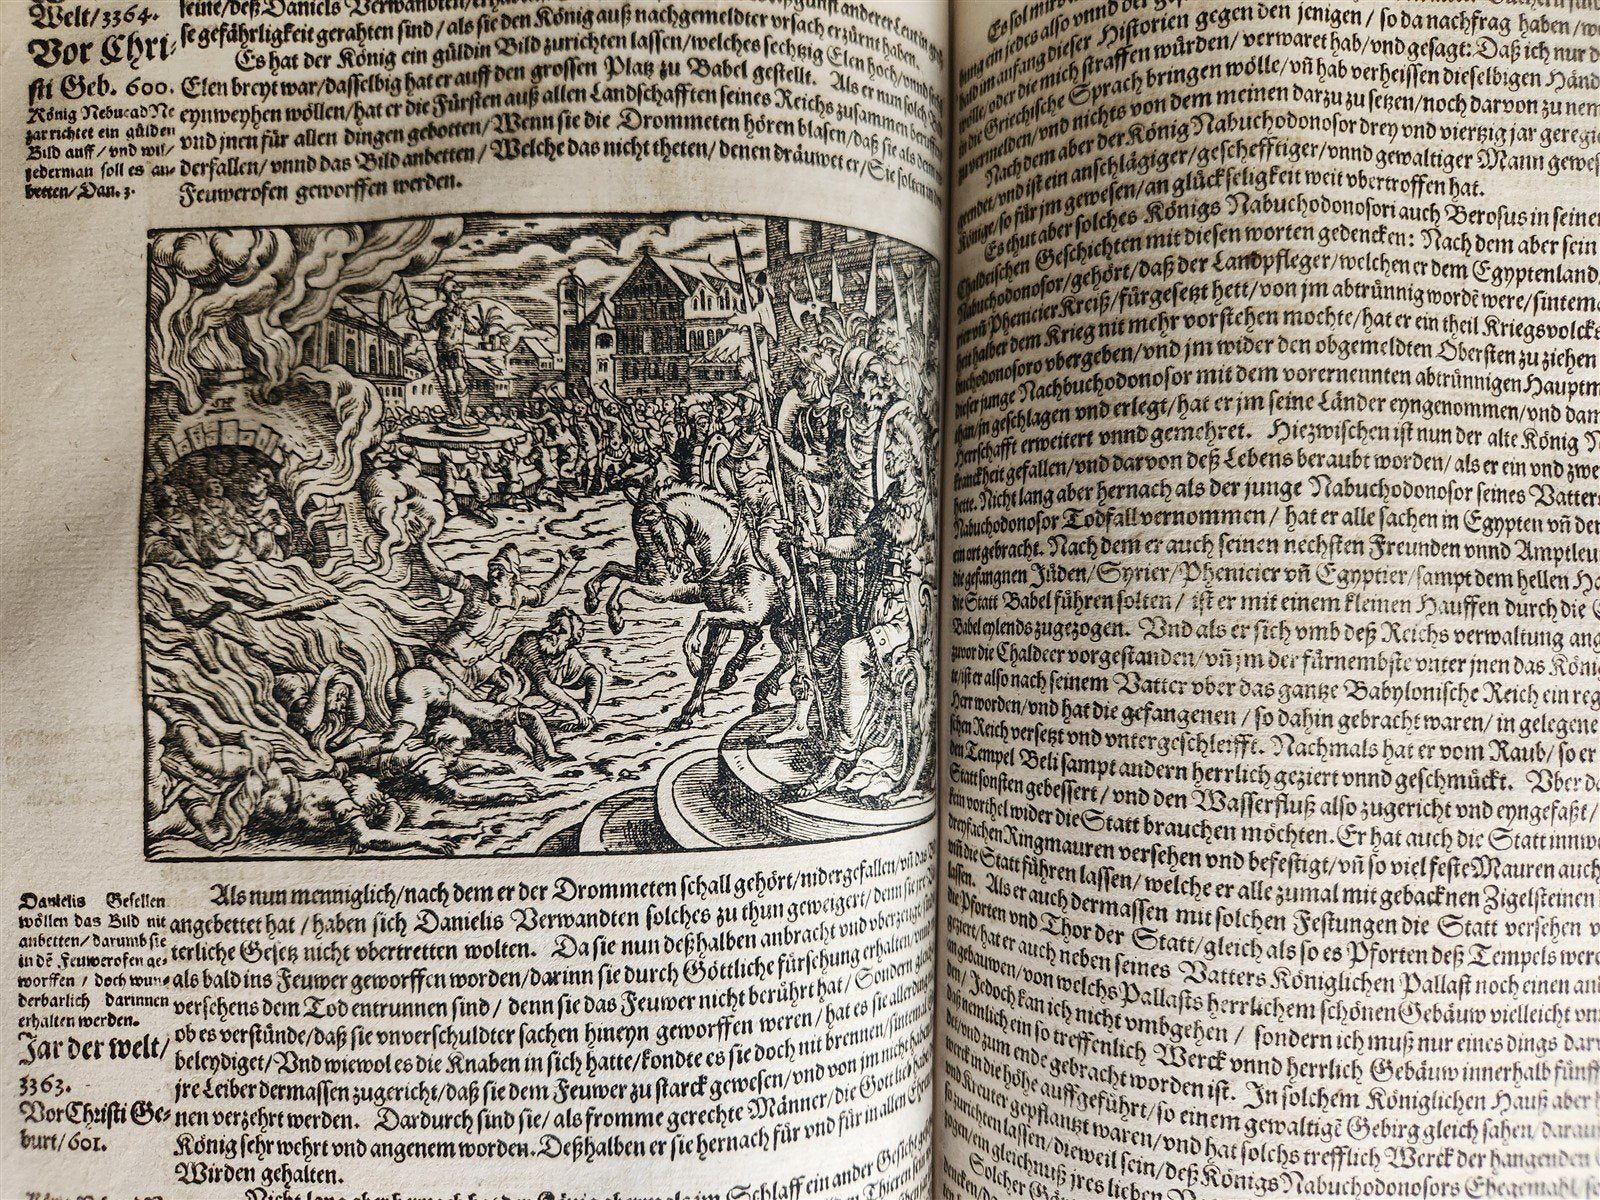 Welt/3364.
Vor Chri-
sti Geb. 600.
König Nebucad Ne
zar richtet ein gülden
Bild auff/ vnd wil/
jederman soll es an-
betten/ Dan. 3.
seine/deß Daniels Verwandten/
se gefährligkeit gerahten sind/ als sie den König auß nachgemeldter vrsach erzürnt haben.
Es hat der König ein güldin Bild zurichten lassen/welches sechtzig Elen hoch/vnnd sechs
Elen breyt war/dasselbig hat er auff den grossen Platz zu Babel gestellt. Als er nun solch Bild
eynweyhen wöllen/hat er die Fürsten auß allen Landschafften seines Reichs zusammen beruffen
vnd jnen für allen dingen gebotten/Wenn sie die Drommeten hören blasen/daß sie als denn
derfallen/vnnd das Bild anbetten/Welche das nicht theten/denen dräuwet er/Sie solten in
Feuwerofen geworffen werden.
Danielis Gesellen
wöllen das Bild nit
anbetten/darumb sie
in dē Feuwerofen ge-
worffen/ doch wun-
derbarlich darinnen
erhalten werden.
Jar der welt/
3363.
Vor Christi Ge-
burt/601.
Als nun menniglich/nach dem er der Drommeten schall gehört/nidergefallen/vñ das
angebettet hat/haben sich Danielis Verwandten solches zu thun geweigert/denn sie jre
terliche Gesetz nicht vbertretten wolten. Da sie nun deßhalben anbracht vnd vberzeuge
als bald ins Feuwer geworffen worden/darinn sie durch Göttliche fürsehung erhalten/vnnd
versehens dem Tod entrunnen sind/ denn sie das Feuwer nicht berührt hat/ Sondern gleich
ob es verstünde/daß sie vnverschuldter sachen hineyn geworffen weren/hat es sie allerding
beleydiget/Vnd wiewol es die Knaben in sich hatte/kondte es sie doch nit brennen/sintemal
jre Leiber dermassen zugericht/daß sie dem Feuwer zu starck gewesen/vnd von jm nicht haben
nen verzehrt werden. Dardurch sind sie/als fromme gerechte Männer/die Gott lieb haben
König sehr wehrt vnd angenem worden. Deßhalben er sie hernach für vnd für in allen Ehren
Wirden gehalten.
Nicht lang aber hernach hat der König abermals im Schlaff ein ander Gesicht
Es sol mir
bung ein jedes also vnnd der
bald im anfang dieser Historien gegen den jenigen/ so da nachfrag haben/
wölle/oder die mich straffen würden/ verwaret hab/vnd gesagt: Daß ich nur
in die Griechische Sprach bringen wölle/vñ hab verheissen dieselbigen Händ
zu vermelden/vnd nichts von dem meinen darzu zu setzen/noch darvon zu nem
Nach dem aber der König Nabuchodonosor drey vnd viertzig jar geregie
gendet/vnd ist ein anschlägiger/geschefftiger/vnnd gewaltiger Mann gewes
Könige/so für jm gewesen/an glückseligkeit weit vbertroffen hat.
Es thut aber solches Königs Nabuchodonosori auch Berosus in seinen
Chaldeischen Geschichten mit diesen worten gedencken: Nach dem aber sein
Nabuchodonosor/gehört/daß der Landpfleger/welchen er dem Egyptenland
vnd Phenicier Kreiß/fürgesetzt hett/von jm abtrünnig wordē were/sintema
hen halber dem Krieg nit mehr vorstehen mochte/hat er ein theil Kriegsvolcks
buchodonosoro vbergeben/vnd jm wider den obgemeldten Obersten zu ziehen
dieser junge Nachbuchodonosor mit dem vorernennten abtrünnigen Hauptm
than/in geschlagen vnd erlegt/hat er jm seine Länder eyngenommen/vnd dam
Herrschafft erweitert vnnd gemehret. Hiezwischen ist nun der alte König
kranckheit gefallen/vnd darvon deß Lebens beraubt worden/als er ein vnd zwe
hette. Nicht lang aber hernach als der junge Nabuchodonosor seines Vatters
Nabuchodonosor Todfall vernommen/ hat er alle sachen in Egypten vñ den
ein ort gebracht. Nach dem er auch seinen nechsten Freunden vnnd Amptleu
die gefangnen Jüden/Syrier/Phenicier vñ Egyptier/sampt dem hellen
die Statt Babel führen solten/ ist er mit einem kleinen Hauffen durch die
Babel eylends zugezogen. Vnd als er sich vmb deß Reichs verwaltung ang
zuvor die Chaldeer vorgestanden/vñ jm der fürnembste vnter jnen das König
te/ist er also nach seinem Vatter vber das gantze Babylonische Reich ein reg
Herr worden/vnd hat die gefangenen/so dahin gebracht waren/in gelegene
schen Reich versetzt vnd vntergeschleifft. Nachmals hat er vom Raub/so er
den Tempel Beli sampt andern herrlich geziert vnnd geschmückt. Vber da
Statt sonsten gebessert/vnd den Wasserfluß also zugericht vnd eyngefaßt/
kein vorthel wider die Statt brauchen möchten. Er hat auch die Statt innw
dreyfachen Ringmauren versehen vnd befestigt/vñ so viel feste Mauren auch
vmb die Statt führen lassen/welche er alle zumal mit gebacknen Zigelsteinen
lassen. Als er auch dermassen mit solchen Festungen die Statt versehen
die Pforten vnd Thor der Statt/gleich als so es Pforten deß Tempels were
geziert/hat er auch neben seines Vatters Königlichen Pallast noch einen an
angebauwen/von welchs Pallasts herrlichem schönen Gebäuw vielleicht vn
den/Jedoch kan ich nicht vmbgehen/ sondern ich muß nur eines dings darv
daß nemlich ein so treffenlich Werck vnnd herrlich Gebäuw innerhalb fünff
det/vnd zum ende gebracht worden ist. In solchem Königlichen Hauß aber
werck in die höhe auffgeführt/so einem gewaltigē Gebirg gleich sahen/darau
vnd Kreuter gepflantzt waren/vnd hat solchs trefflich Werck der hangenden
so zurichten lassen/dieweil sein/deß Königs Nabuchodonosors Ehegemahl
zogen/ein gleichnuß jres lieben
Solcher